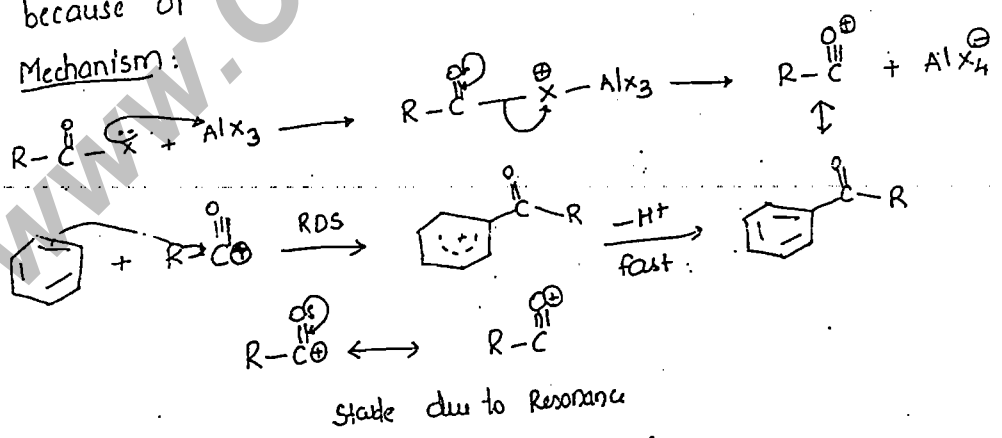 because of
Mechanism:
R–C(=O)–X̤ + AlX₃ ⟶ R–C(=O)–X⊕–AlX₃ ⟶ R–C≡O⊕ + AlX₄⊖
↕
+ R–C⊕(=O) RDS ⟶ C(=O)–R –H⁺ fast ⟶ C(=O)–R
R–C⊕(=O) ⟷ R–C≡O⊕
Stable due to Resonance
www.